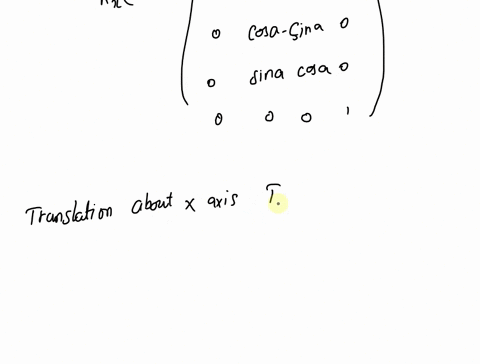 0 cosa -sina 0
0 sina cosa 0
0 0 0 1
Translation about x axis T.